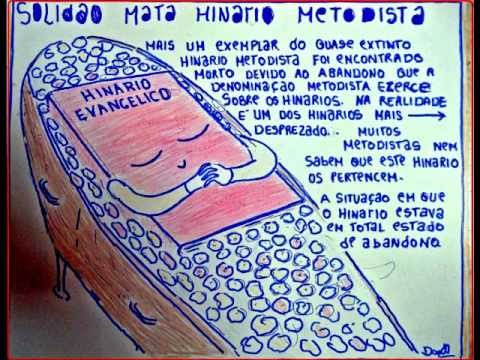 SOLIDÃO MATA HINARIO METODISTA
MAIS UM EXEMPLAR DO QUASE EXTINTO
HINARIO METODISTA FOI ENCONTRADO
MORTO DEVIDO AO ABANDONO QUE A
DENOMINAÇÃO METODISTA EZERCE
SOBRE OS HINARIOS. NA REALIDADE
E' UM DOS HINARIOS MAIS
DESPREZADO... MUITOS
METODISTAS NEM
SABEM QUE ESTE HINARIO
OS PERTENCEM.
A SITUAÇÃO EM QUE
O HINARIO ESTAVA
EM TOTAL ESTADO
DE ABANDONO
HINARIO
EVANGELICO